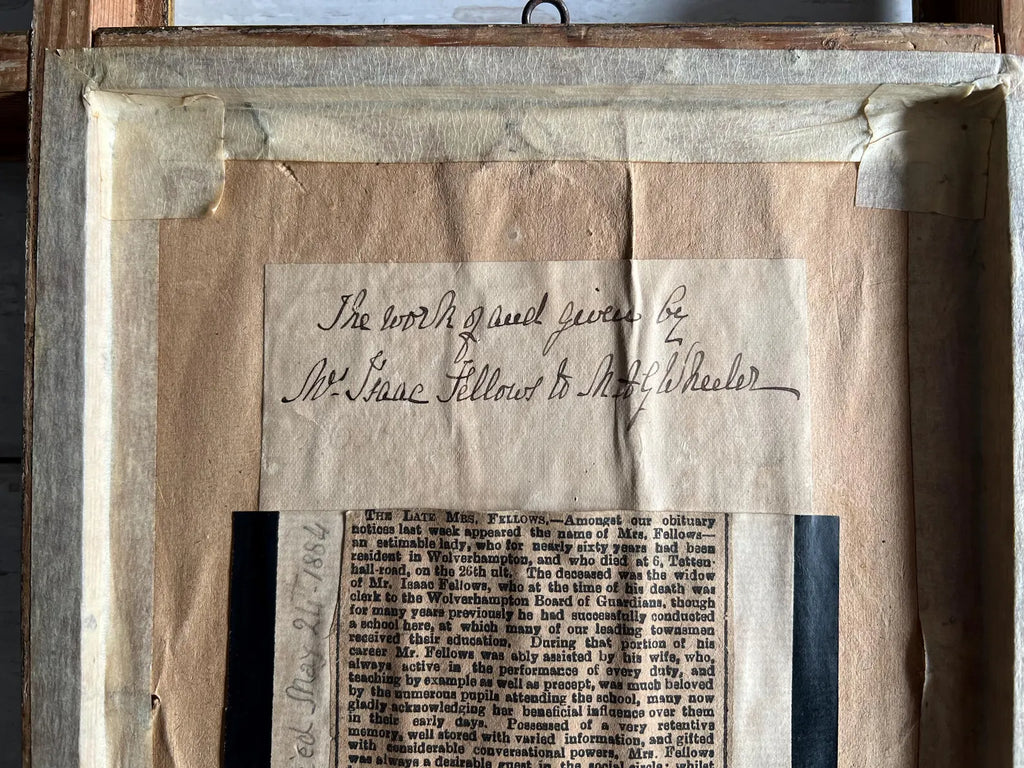 The work of and given by
Mrs. Isaac Fellows to M A G Wheeler
THE LATE MRS. FELLOWS.—Amongst our obituary
notices last week appeared the name of Mrs. Fellows—
an estimable lady, who for nearly sixty years had been
resident in Wolverhampton, and who died at 6, Tetten-
hall-road, on the 26th ult. The deceased was the widow
of Mr. Isaac Fellows, who at the time of his death was
clerk to the Wolverhampton Board of Guardians, though
for many years previously he had successfully conducted
a school here, at which many of our leading townsmen
received their education. During that portion of his
career Mr. Fellows was ably assisted by his wife, who,
always active in the performance of every duty, and
teaching by example as well as precept, was much beloved
by the numerous pupils attending the school, many now
gladly acknowledging her beneficial influence over them
in their early days. Possessed of a very retentive
memory, well stored with varied information, and gifted
with considerable conversational powers, Mrs. Fellows
was always a desirable guest in the social circle; whilst
May 1884